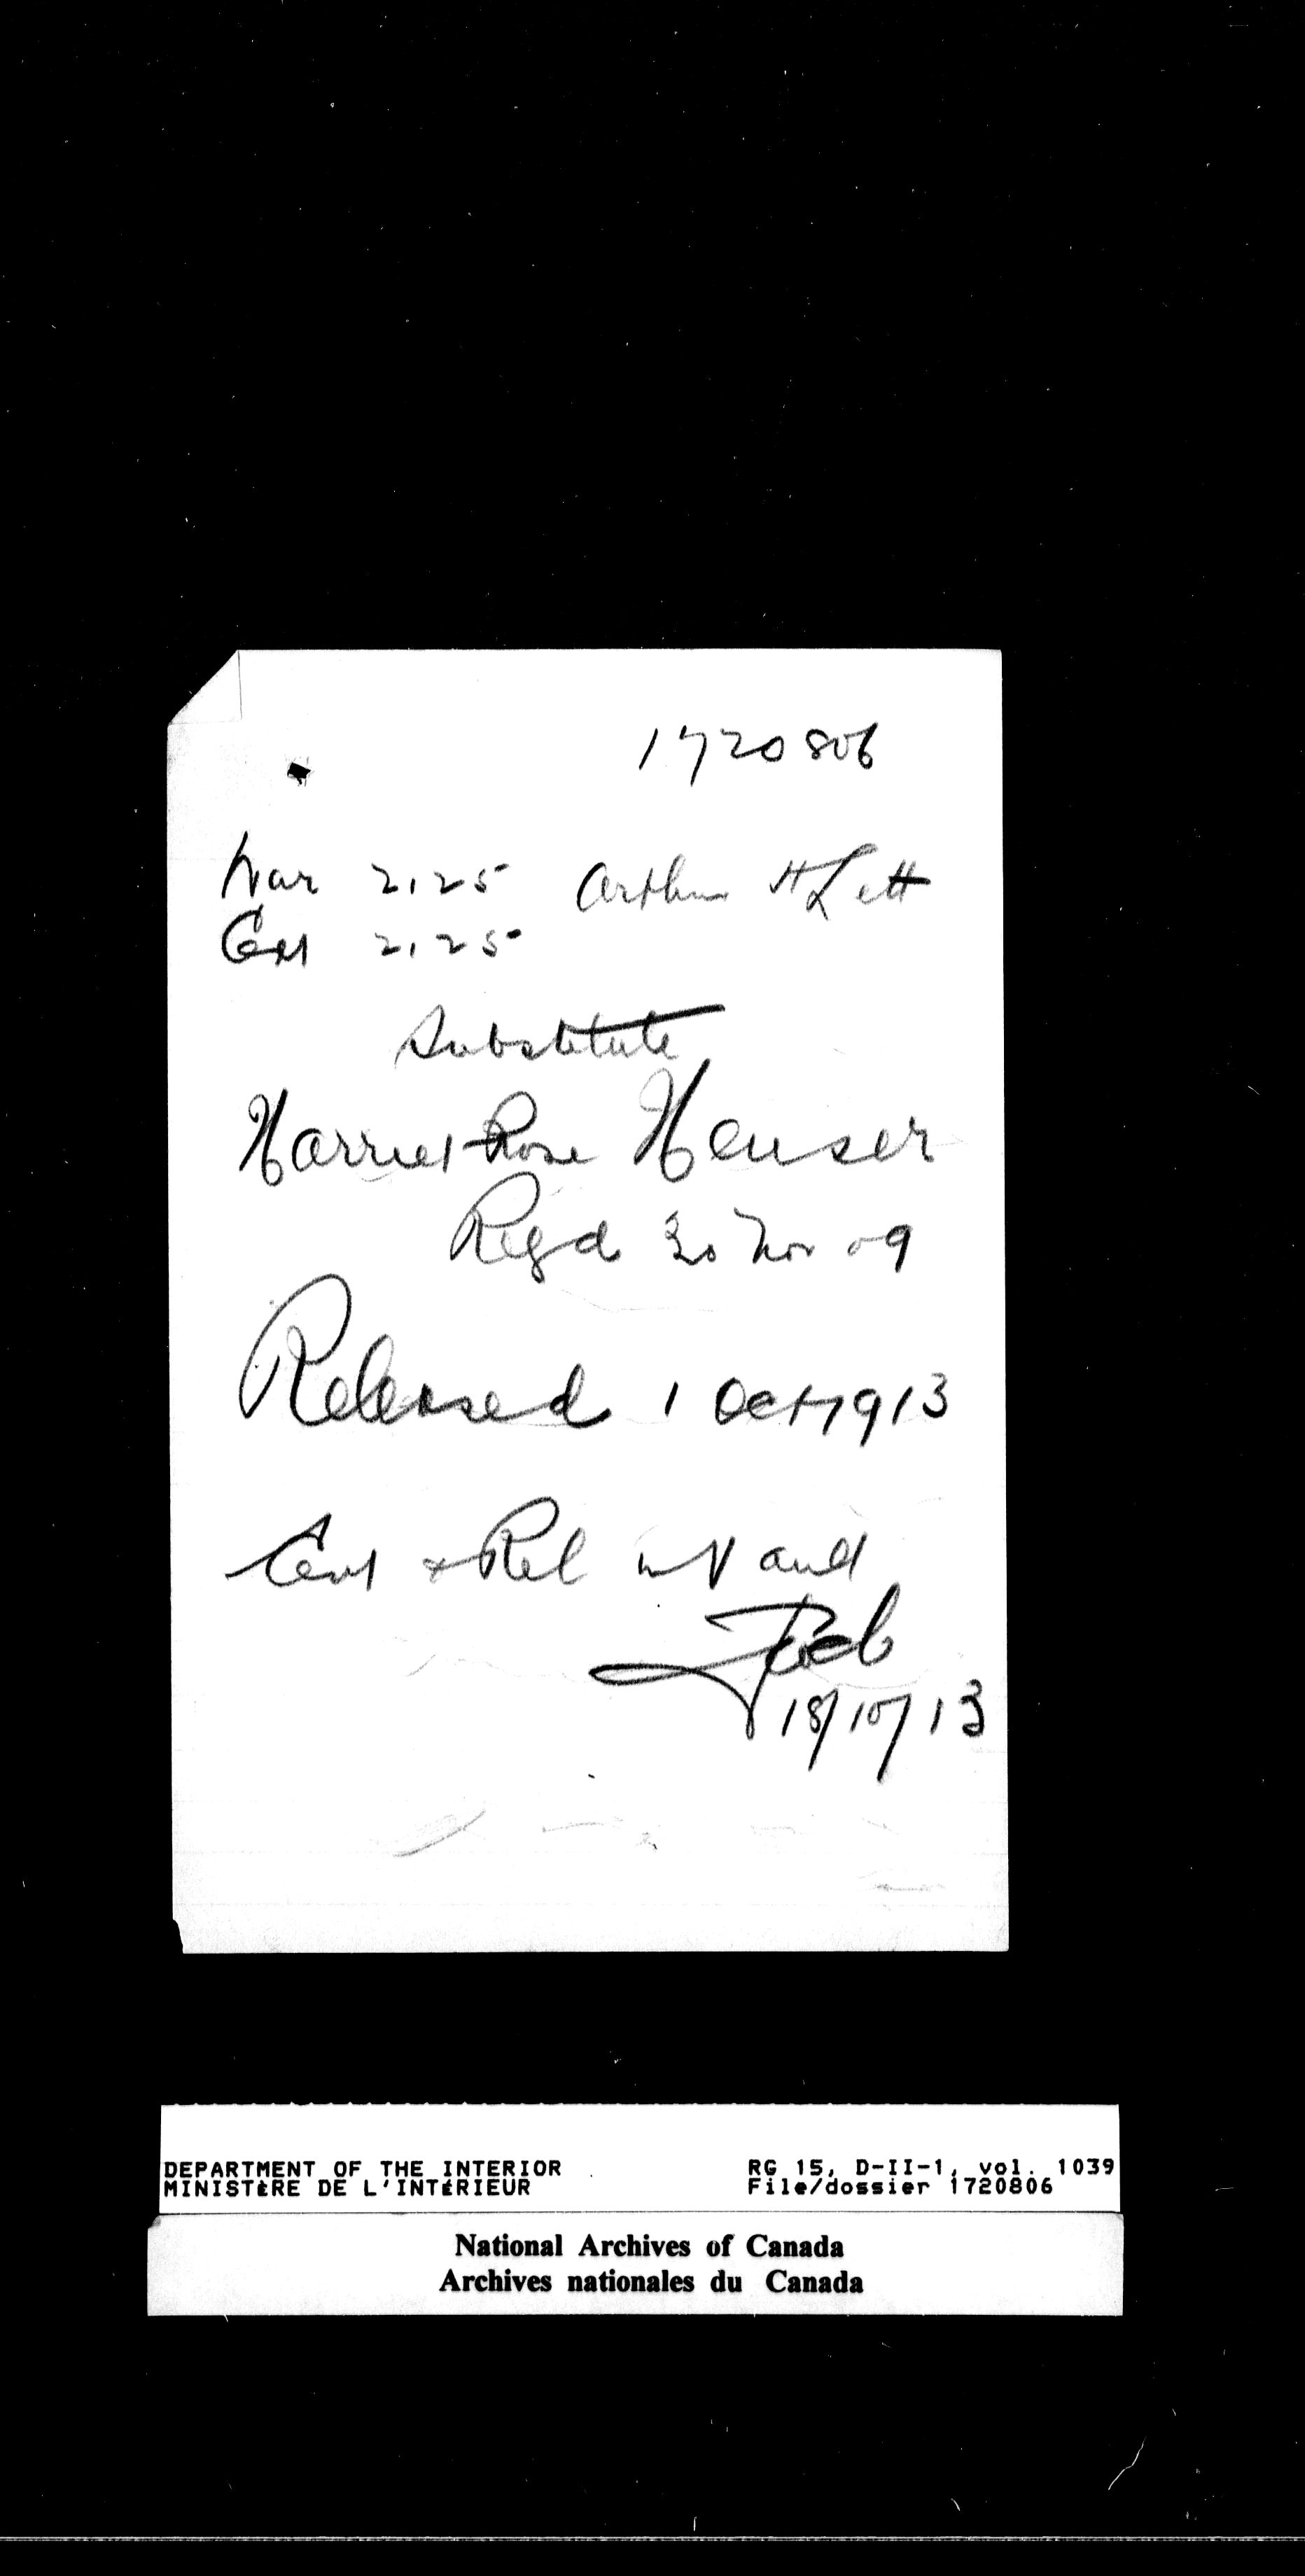 1720806
War 2125 Arthur H Lett
Cert 2125
Substitute
Harriet Rose Heuser
Regd 30 Nov 09
Released 1 Oct 1913
Cert & Rel
18/10/13
DEPARTMENT OF THE INTERIOR RG 15, D-II-1, vol. 1039
MINISTÈRE DE L'INTÉRIEUR File/dossier 1720806
National Archives of Canada
Archives nationales du Canada